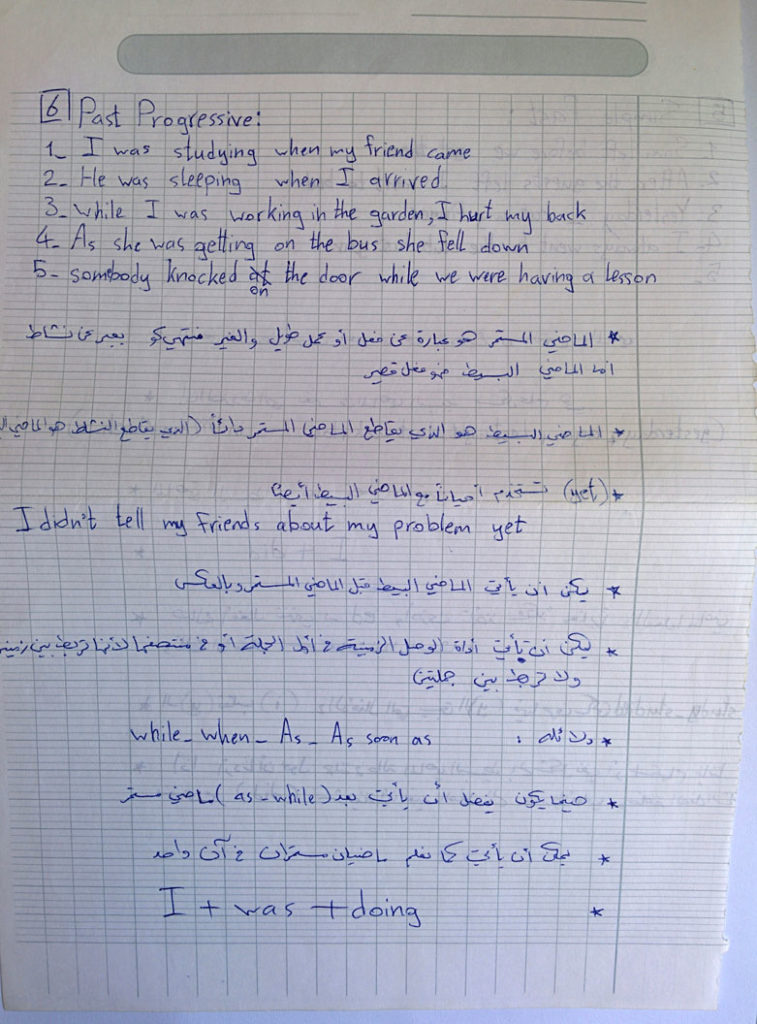 6 Past Progressive:
1_ I was studying when my friend came
2_ He was sleeping when I arrived
3_ while I was working in the garden, I hurt my back
4_ As she was getting on the bus she fell down
5_ somebody knocked at on the door while we were having a lesson
* الماضي المستمر هو عبارة عن فعل أو عمل طويل والغير منتهي يعبر عن نشاط
اما الماضي البسيط هو فعل قصير
* الماضي البسيط هو الذي يقاطع الماضي المستمر دائماً (الذي يقاطع النشاط هو الماضي
* (yet) تستخدم أحياناً مع الماضي البسيط أيضاً
I didn't tell my friends about my problem yet
* يمكن ان يأتي الماضي البسيط قبل الماضي المستمر وبالعكس
* يمكن أن يأتي أداة الوصل الزمنية في أول الجملة أو في منتصفها لأنها تربط بين
ولا تربط بين جملتين
* دلائله : while _ when _ As _ As soon as
* حينما يكون يفضل أن يأتي بعد (as - while) ماضي مستمر
* يمكن أن يأتي كما نعلم ماضيان مستمران في آن واحد
* I + was + doing